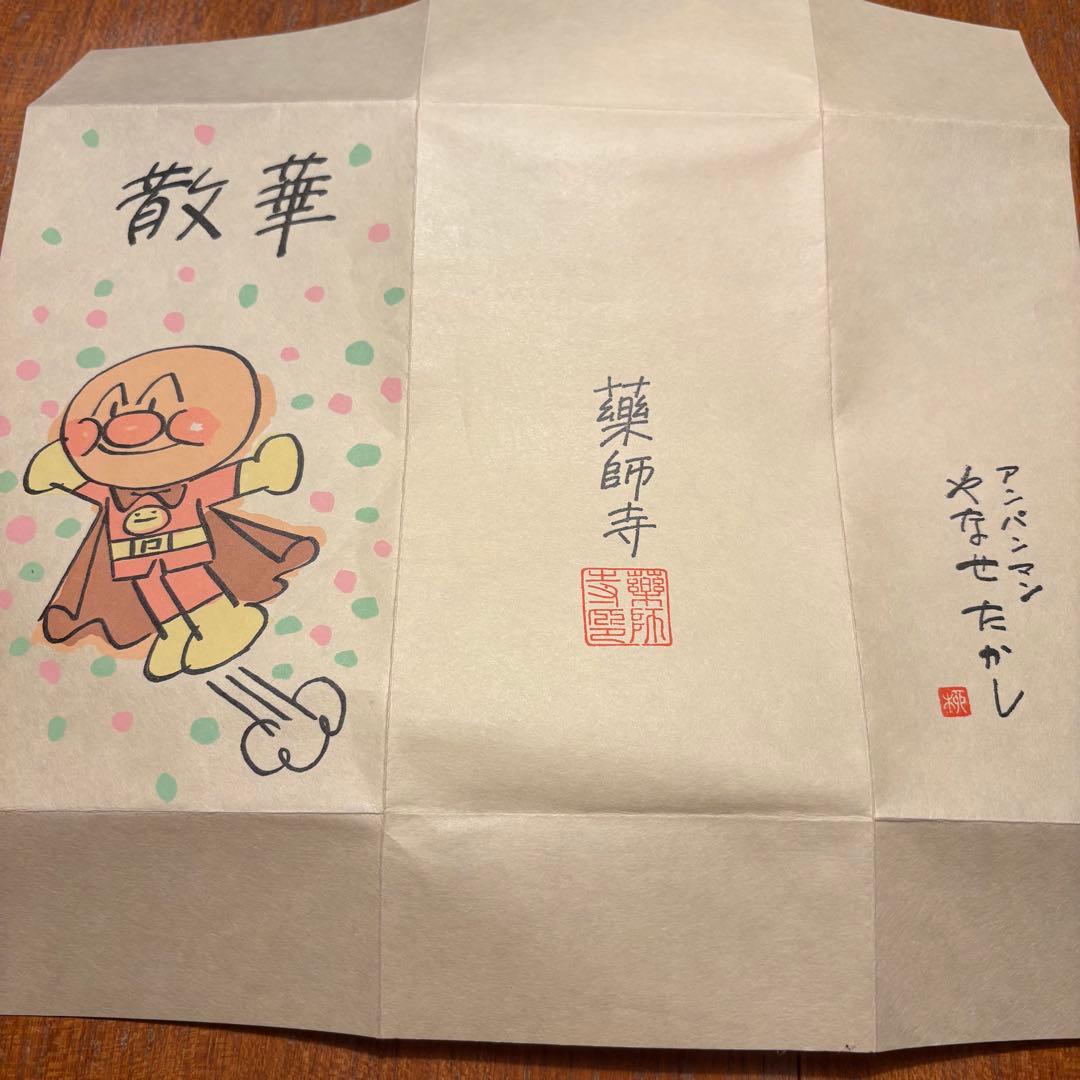 散華
藥師寺
藥師
寺印
アンパンマン
やなせたかし
柳